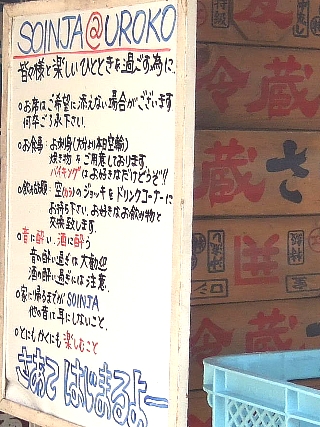 SOINJA@UROKO
皆の様と楽しいひとときを過ごす為に
○お席はご希望に添えない場合がございます
何卒ご了承下さい。
○お食事:お刺身(大分より本日空輸)
焼き物 をご用意しております。
バイキングはお好きなだけどうぞ!!
○飲み放題:空(から)のジョッキをドリンクコーナーに
お持ち下さい。お好きなお飲み物と
交換致します。
○音に酔い、酒に酔う
音の酔い過ぎは大歓迎
酒の酔い過ぎには注意。
○家に帰るまでがSOINJA
他の音は耳にしないこと。
○とにもかくにも楽しむこと
さあて はじまるよー
冷蔵
蔵さ
冷蔵